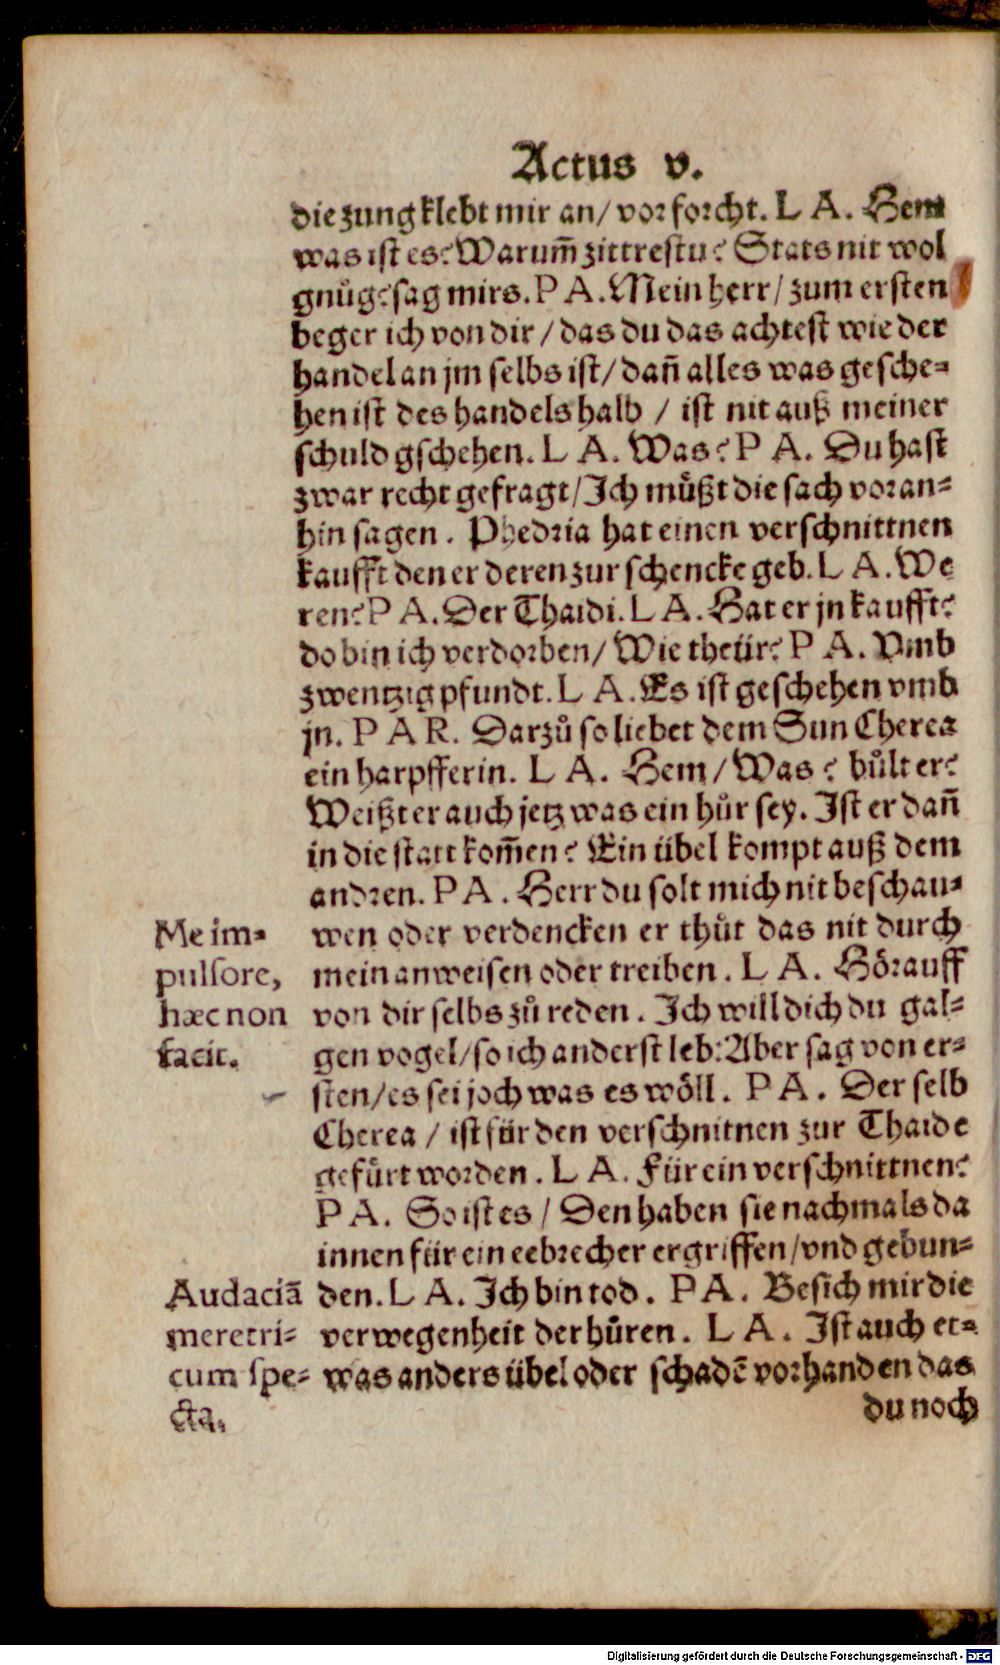 Actus v.
die zung klebt mir an/ vor forcht. L A. Hem
was ist es? Warum̃ zittrestu? Stats nit wol
gnůg? sag mirs. P A. Mein herr/ zum ersten
beger ich von dir / das du das achtest wie der
handel an jm selbs ist/ dañ alles was gesche=
hen ist des handels halb / ist nit auß meiner
schuld gschehen. L A. Was? P A. Du hast
zwar recht gefragt/ Ich můßt die sach voran=
hin sagen. Phedria hat einen verschnittnen
kaufft den er deren zur schencke geb. L A. We
ren? P A. Der Thaidi. L A. Hat er jn kaufft?
do bin ich verdorben/ Wie theür? P A. Vmb
zwentzig pfundt. L A. Es ist geschehen vmb
jn. P A R. Darzů so liebet dem Sun Cherea
ein harpfferin. L A. Hem/ Was? bůlt er?
Weißt er auch jetz was ein hůr sey. Ist er dañ
in die statt kom̃en? Ein übel kompt auß dem
andren. P A. Herr du solt mich nit beschau=
wen oder verdencken er thůt das nit durch
mein anweisen oder treiben. L A. Hörauff
von dir selbs zů reden. Ich will dich du gal=
gen vogel/ so ich anderst leb: Aber sag von er=
sten/ es sei joch was es wöll. P A. Der selb
Cherea / ist für den verschnitnen zur Thaide
gefůrt worden. L A. Für ein verschnittnen?
P A. So ist es / Den haben sie nachmals da
innen für ein eebrecher ergriffen/ vnd gebun=
den. L A. Ich bin tod. P A. Besich mir die
verwegenheit der hůren. L A. Ist auch et=
was anders übel oder schadē vorhanden das
du noch
Me im=
pulsore,
hæc non
facit.
Audaciā
meretri=
cum spe=
cta.
Digitalisierung gefördert durch die Deutsche Forschungsgemeinschaft - DFG